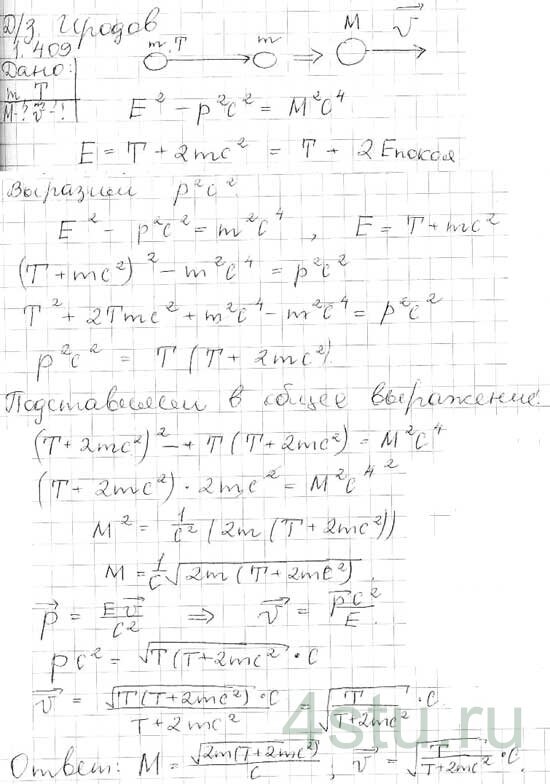 Д/з. Иродов
1.409
Дано:
m T
M-? v⃗-?
m T m ⇒ M v⃗
E² - p²c² = M²c⁴
E = T + 2mc² = T + 2Eпокоя
Выразим p²c².
E² - p²c² = m²c⁴ , E = T + mc²
(T + mc²)² - m²c⁴ = p²c²
T² + 2Tmc² + m²c⁴ - m²c⁴ = p²c²
p²c² = T(T + 2mc²)
Подставляем в общее выражение:
(T + 2mc²)² - T(T + 2mc²) = M²c⁴
(T + 2mc²) · 2mc² = M²c⁴ ²
M² = 1/c² (2m(T + 2mc²))
M = 1/c √(2m(T + 2mc²)).
p⃗ = Ev⃗/c² ⇒ v⃗ = p⃗c²/E.
pc² = √(T(T + 2mc²)) · c
v⃗ = √(T(T + 2mc²)) · c / (T + 2mc²) = √(T/(T + 2mc²)) · c.
4stu.ru
Ответ: M = √(2m(T + 2mc²))/c ; v⃗ = √(T/(T + 2mc²)) · c.